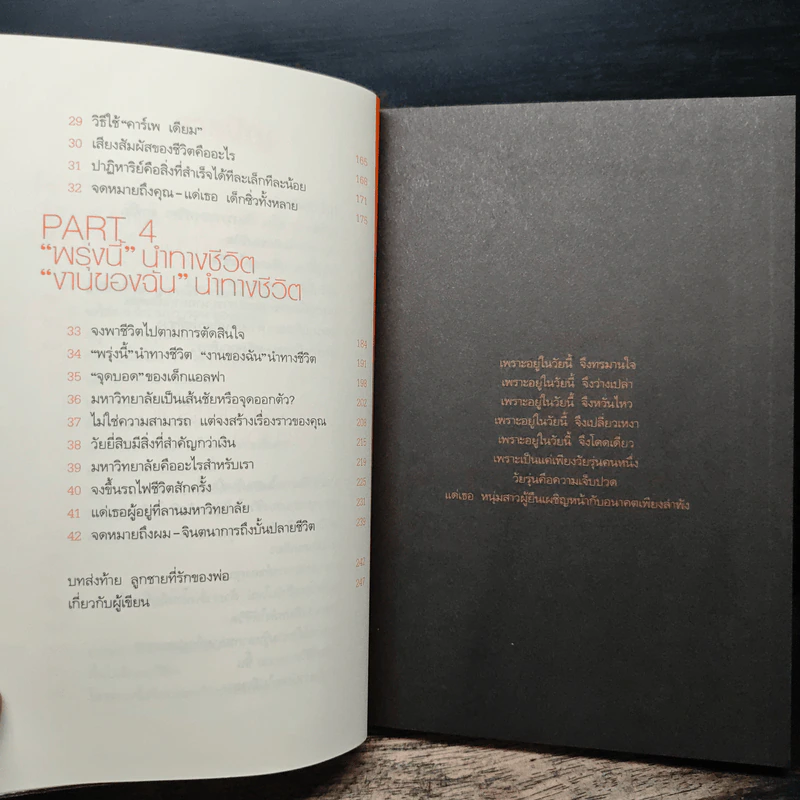 29 วิธีใช้ “คาร์เพ เดียม” 165
30 เสียงสัมผัสของชีวิตคืออะไร 168
31 ปาฏิหาริย์คือสิ่งที่สำเร็จได้ทีละเล็กทีละน้อย 171
32 จดหมายถึงคุณ – แด่เธอ เด็กซิ่วทั้งหลาย 175
PART 4
“พรุ่งนี้” นำทางชีวิต
“งานของฉัน” นำทางชีวิต
33 จงพาชีวิตไปตามการตัดสินใจ 184
34 “พรุ่งนี้” นำทางชีวิต “งานของฉัน” นำทางชีวิต 191
35 “จุดบอด” ของเด็กแอลฟา 198
36 มหาวิทยาลัยเป็นเส้นชัยหรือจุดออกตัว? 202
37 ไม่ใช่ความสามารถ แต่จงสร้างเรื่องราวของคุณ 206
38 วัยยี่สิบมีสิ่งที่สำคัญกว่าเงิน 215
39 มหาวิทยาลัยคืออะไรสำหรับเรา 219
40 จงขึ้นรถไฟชีวิตสักครั้ง 225
41 แด่เธอผู้อยู่ที่ลานมหาวิทยาลัย 232
42 จดหมายถึงผม – จินตนาการถึงบั้นปลายชีวิต 235
บทส่งท้าย ลูกชายที่รักของพ่อ 242
เกี่ยวกับผู้เขียน 247
เพราะอยู่ในวัยนี้ จึงทรมานใจ
เพราะอยู่ในวัยนี้ จึงว่างเปล่า
เพราะอยู่ในวัยนี้ จึงหวั่นไหว
เพราะอยู่ในวัยนี้ จึงเปลี่ยวเหงา
เพราะอยู่ในวัยนี้ จึงโดดเดี่ยว
เพราะเป็นแค่เพียงวัยรุ่นคนหนึ่ง
วัยรุ่นคือความเจ็บปวด
แด่เธอ หนุ่มสาวผู้ยืนเผชิญหน้ากับอนาคตเพียงลำพัง